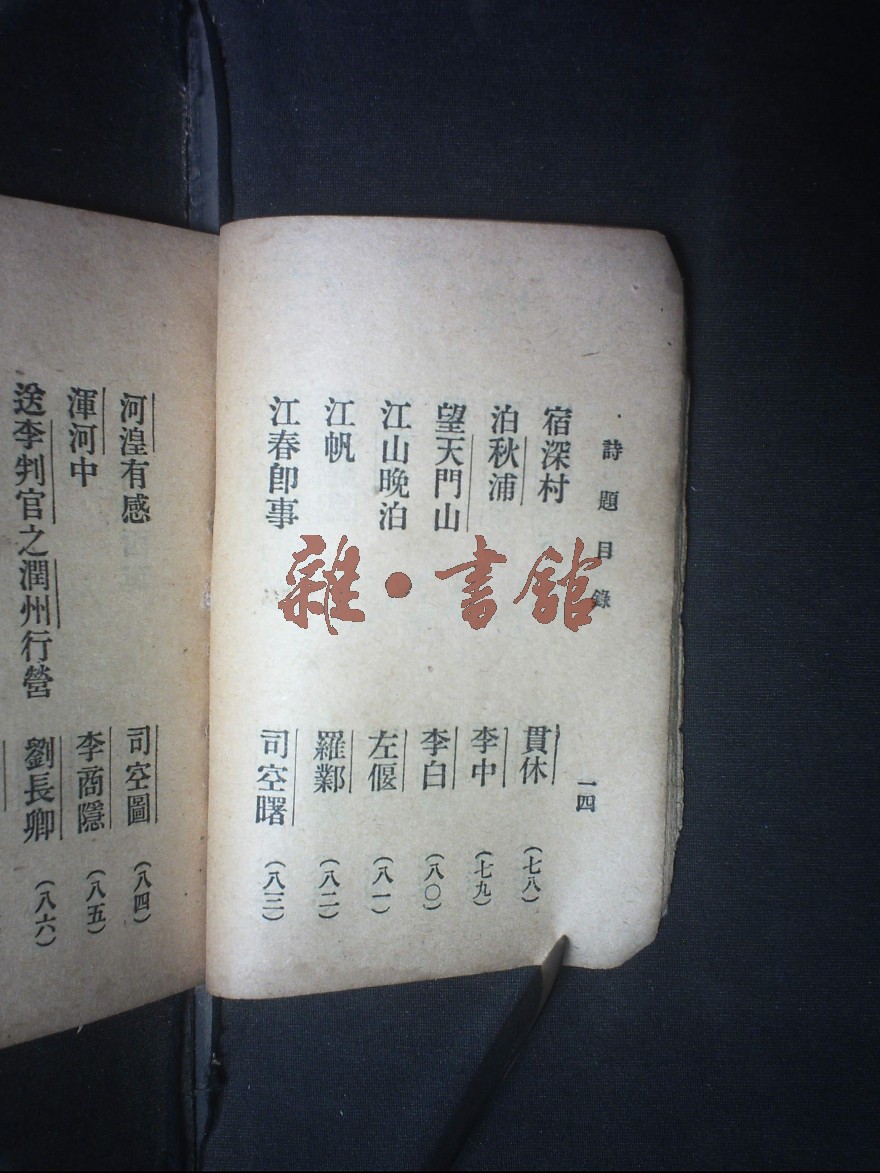 詩題目錄
一四
宿深村 貫休 (七八)
泊秋浦 李中 (七九)
望天門山 李白 (八〇)
江山晚泊 左偃 (八一)
江帆 羅鄴 (八二)
江春卽事 司空曙 (八三)
河湟有感 司空圖 (八四)
渾河中 李商隱 (八五)
送李判官之潤州行營 劉長卿 (八六)
雜·書館